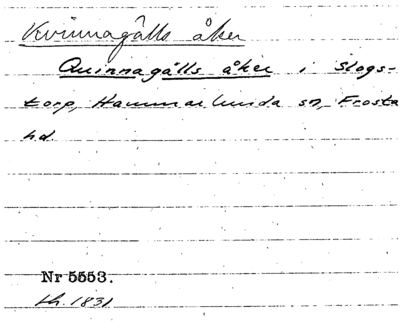 Kvinnagálls åker
Quinnagálls åker i Slogs-
torp, Hammarlunda sn, Frosta
hd.
Nr 5553.
kh. 1831